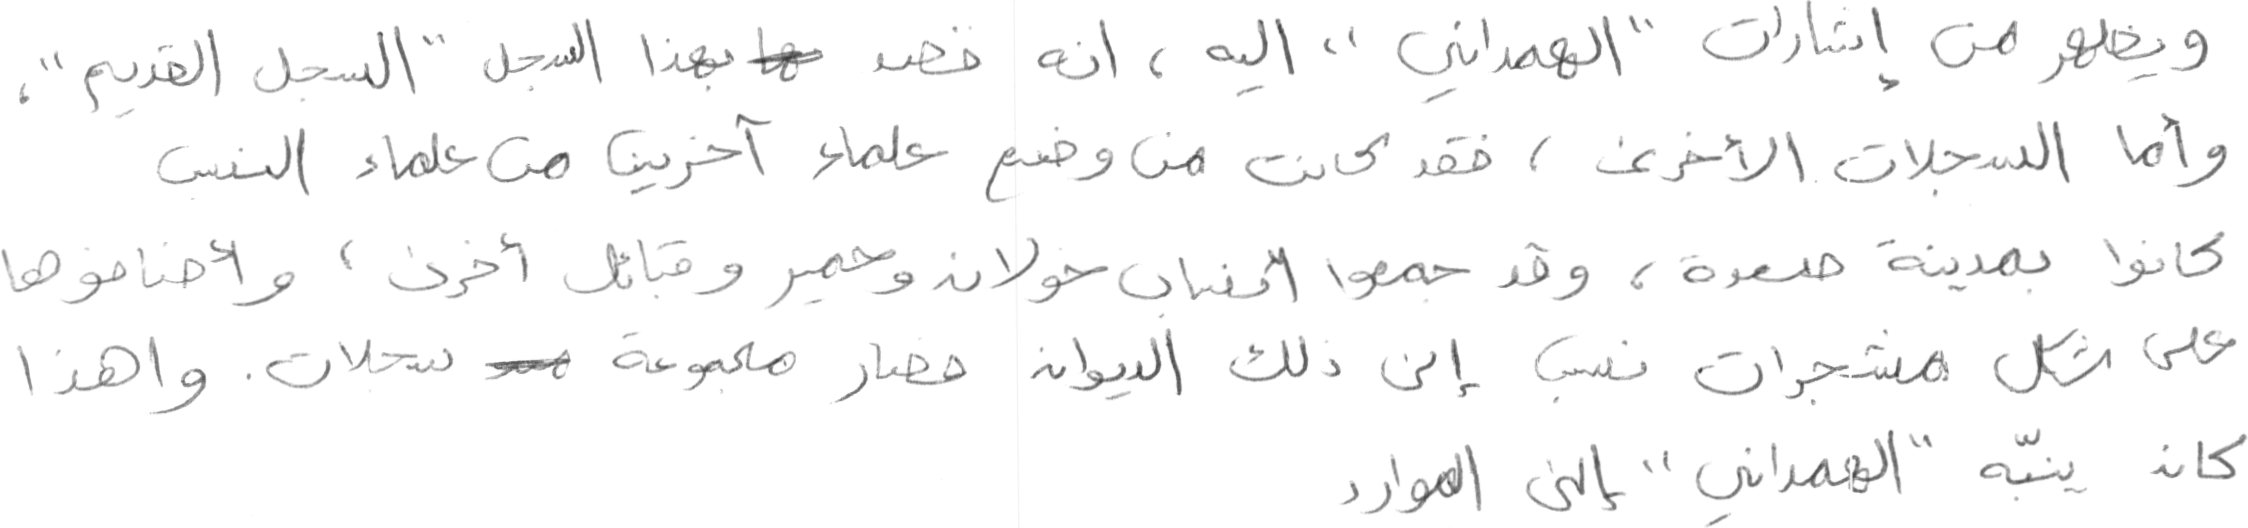 ويظهر من إشارات "الهمداني" اليه، انه قصد بهذا السجل "السجل القديم"،
وأما السجلات الأخرى، فقد كانت من وضع علماء آخرين من علماء النسب
كانوا بمدينة صعدة، وقد جمعوا أنساب خولان وحمير وقبائل أخرى، وأضافوها
على شكل مشجرات نسب إلى ذلك الديوان فصار مجموعة سجلات. واهذا
كان ينبّه "الهمداني" إلى الموارد